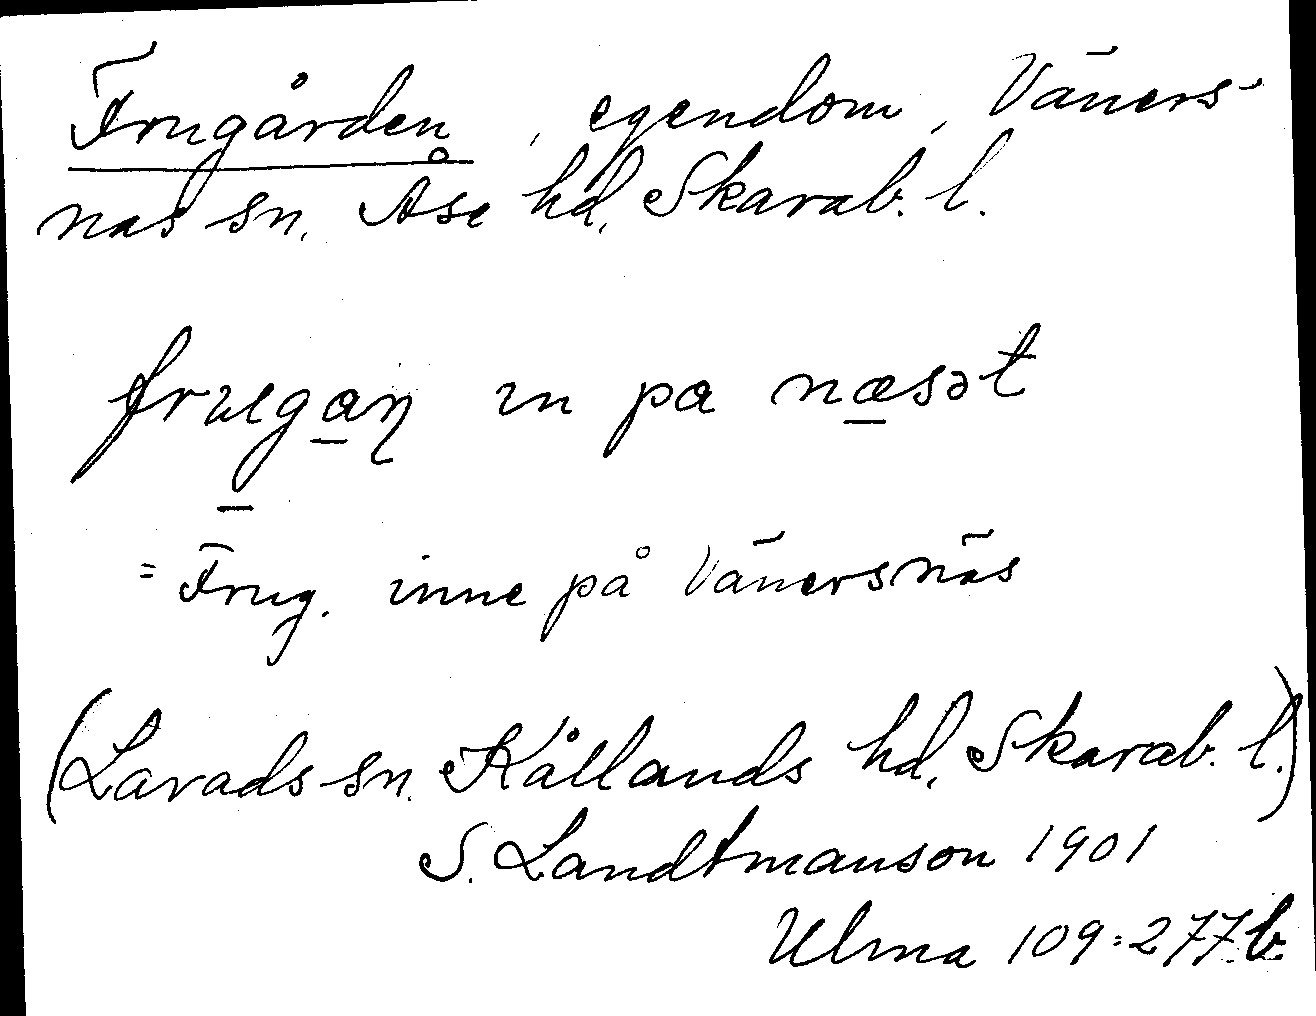 Frugården, egendom, Väners-
näs sn. Åse hd, Skarab. l.
frugaŋ in pa næsət
= Frug. inne på Vänersnäs
(Lavads sn. Kållands hd, Skarab. l.)
S. Landtmanson 1901
Ulma 109:277 b.